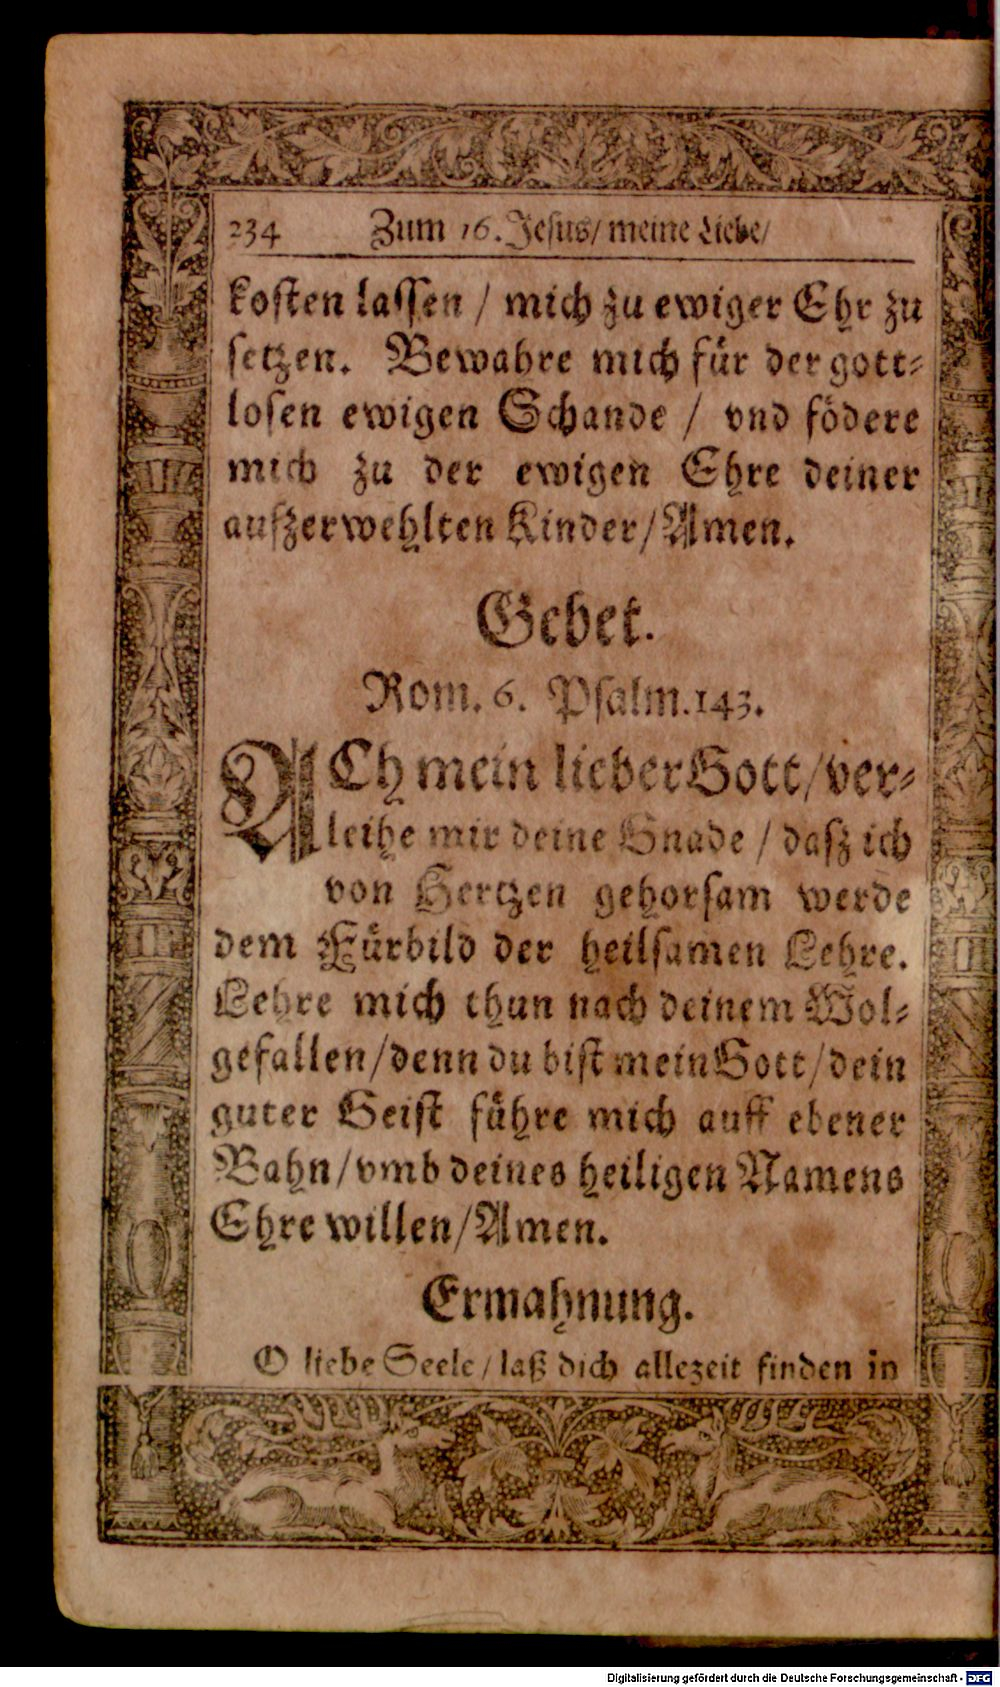 234 Zum 16. Jesus/ meine Liebe/
kosten lassen / mich zu ewiger Ehr zu
setzen. Bewahre mich fuͤr der gott⸗
losen ewigen Schande / vnd foͤdere
mich zu der ewigen Ehre deiner
auſzerwehlten Kinder/ Amen.
Gebet.
Rom. 6. Psalm. 143.
ACh mein lieber Gott/ ver⸗
leihe mir deine Gnade / daſz ich
von Hertzen gehorsam werde
dem Fuͤrbild der heilsamen Lehre.
Lehre mich thun nach deinem Wol⸗
gefallen/ denn du bist mein Gott/ dein
guter Geist fuͤhre mich auff ebener
Bahn/ vmb deines heiligen Namens
Ehre willen/ Amen.
Ermahnung.
O liebe Seele/ laß dich allezeit finden in
Digitalisierung gefördert durch die Deutsche Forschungsgemeinschaft - DFG